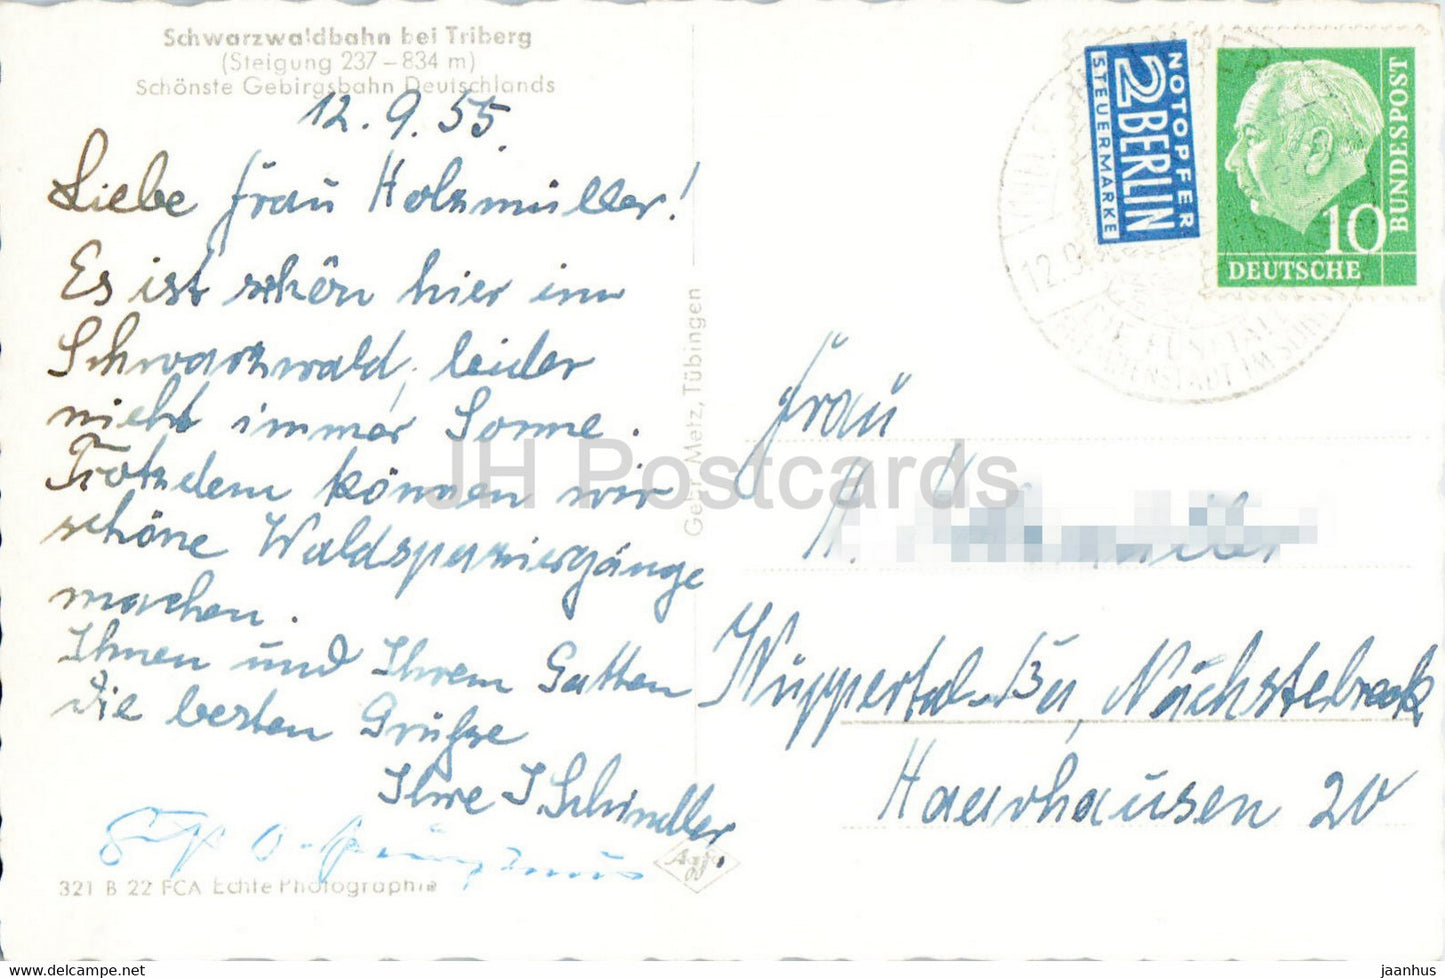 Schwarzwaldbahn bei Triberg
(Steigung 237 – 834 m)
Schönste Gebirgsbahn Deutschlands
12.9.55
Liebe Frau Holzmüller!
Es ist schön hier im
Schwarzwald, leider
nicht immer Sonne.
Trotzdem können wir
schöne Waldspaziergänge
machen.
Ihnen und Ihrem Gatten
die besten Grüße
Ihre I Schindler
321 B 22 FCA Echte Photographie
Agfa
Gebr. Metz, Tübingen
NOTOPFER
2 BERLIN
STEUERMARKE
DEUTSCHE
BUNDESPOST
10
12.9
Frau
Wuppertal-Ba, Nächstebreck
Haarhausen 20
JH Postcards
jaanhus - www.delcampe.net